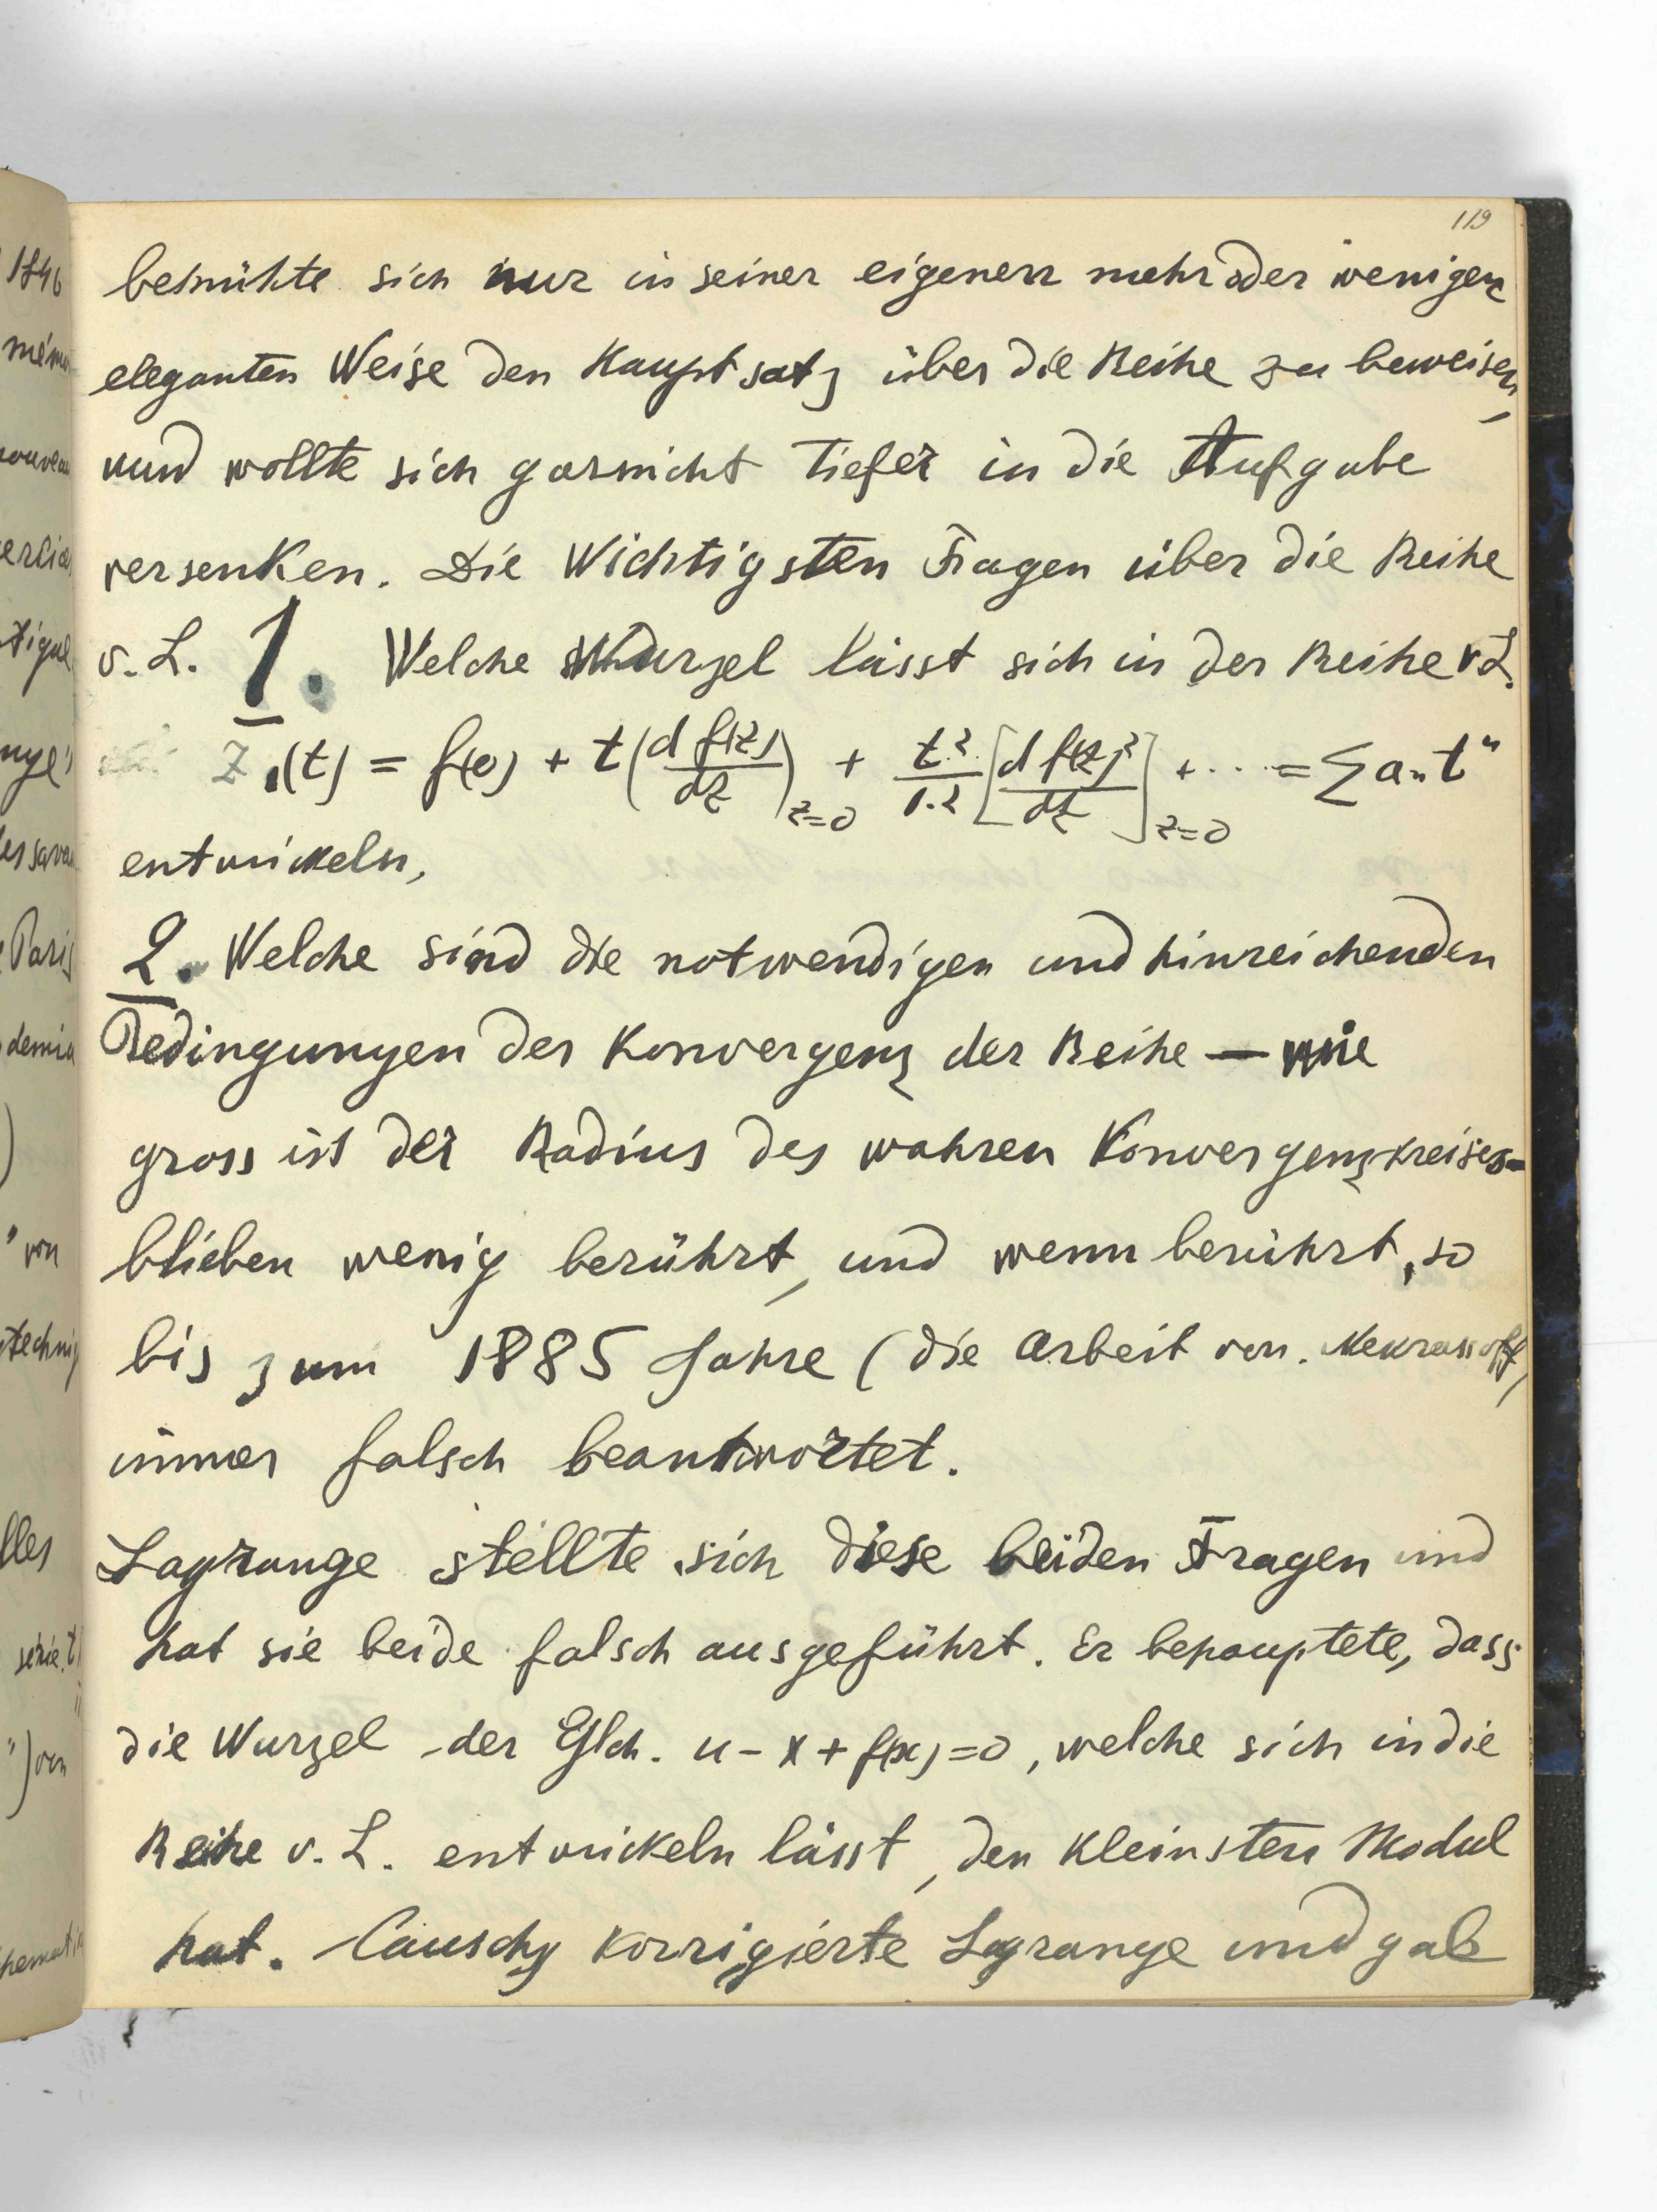 119
bemühte sich nur in seiner eigenen mehr oder wenigen
eleganten Weise den Hauptsatz über die Reihe zu beweisen,
und wollte sich garnicht tiefer in die Aufgabe
versenken. Die Wichtigsten Fragen über die Reihe
v. L. 1. Welche Wurzel lässt sich in der Reihe v L.
z₁(t) = f(0) + t(d f(z)/dz)z=0 + t²/1.2 [d f(z)²/dz]z=0 + ... = ∑ aₙ tⁿ
entwickeln,
2. Welche sind die notwendigen und hinreichenden
Bedingungen der Konvergenz der Reihe — wie
gross ist der Radius des wahren Konvergenzkreises —
blieben wenig berührt, und wenn berührt, so
bis zum 1885 Jahre (die Arbeit von. Nekrassoff)
immer falsch beantwortet.
Lagrange stellte sich diese beiden Fragen und
hat sie beide falsch ausgeführt. Er behauptete, dass
die Wurzel der Glch. u - x + f(x) = 0, welche sich in die
Reihe v. L. entwickeln lässt, den kleinsten Modul
hat. Causchy korrigierte Lagrange und gab